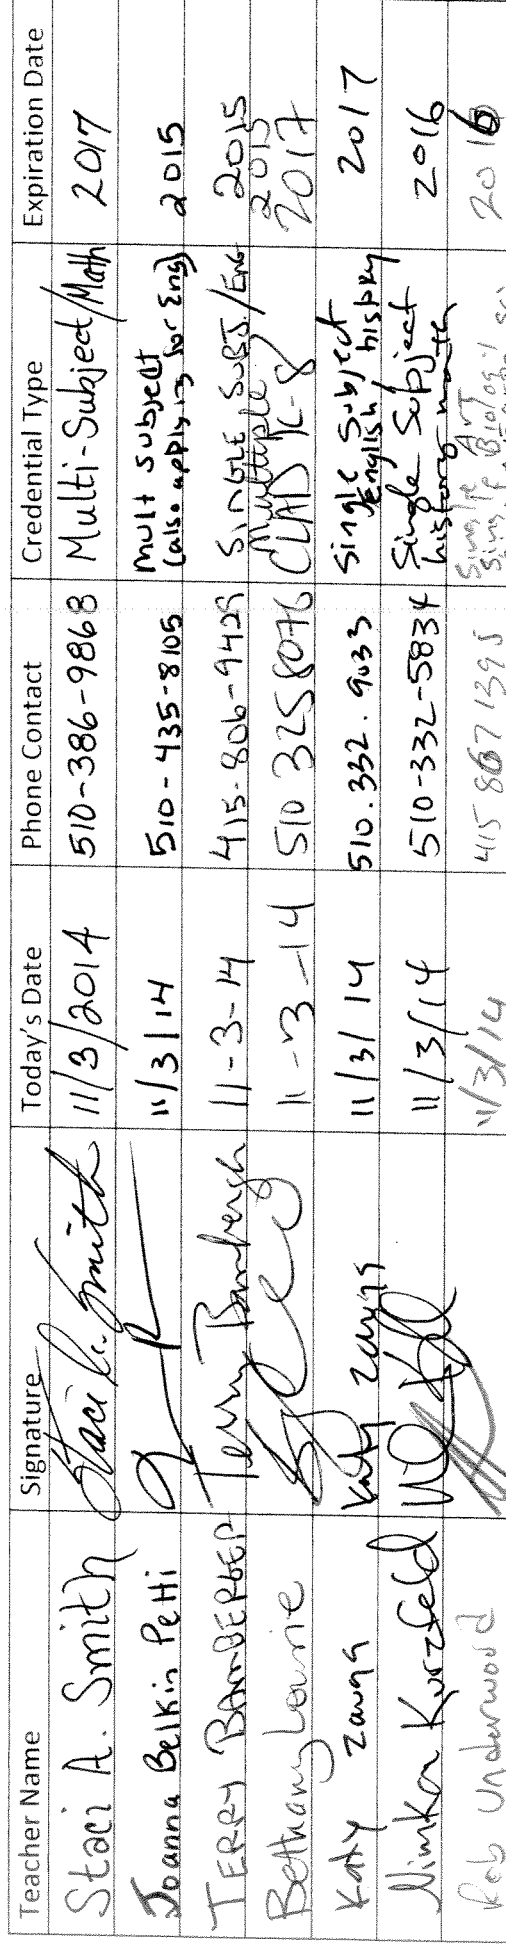 Teacher Name Signature Today's Date Phone Contact Credential Type Expiration Date
Staci A. Smith Staci A. Smith 11/3/2014 510-386-9868 Multi-Subject/Math 2017
Joanna Belkin Petti 11/3/14 510-435-8105 Mult Subject 2015
(also applying for Eng)
TERRY BAMBERGER Terry Bamberger 11-3-14 415-806-9429 SINGLE SUBJ./ENG 2015
Multiple 2015
Bethany Lourie 11-3-14 510 325 8076 CLAD K-8 2017
Katy Zaugg Katy Zaugg 11/3/14 510.332.9033 Single Subject 2017
English history
Nimkon Kurzfeld 11/3/14 510-332-5834 Single Subject 2016
history math
Rob Underwood 11/3/14 415 867 1395 Single Art 2016
Single Biology